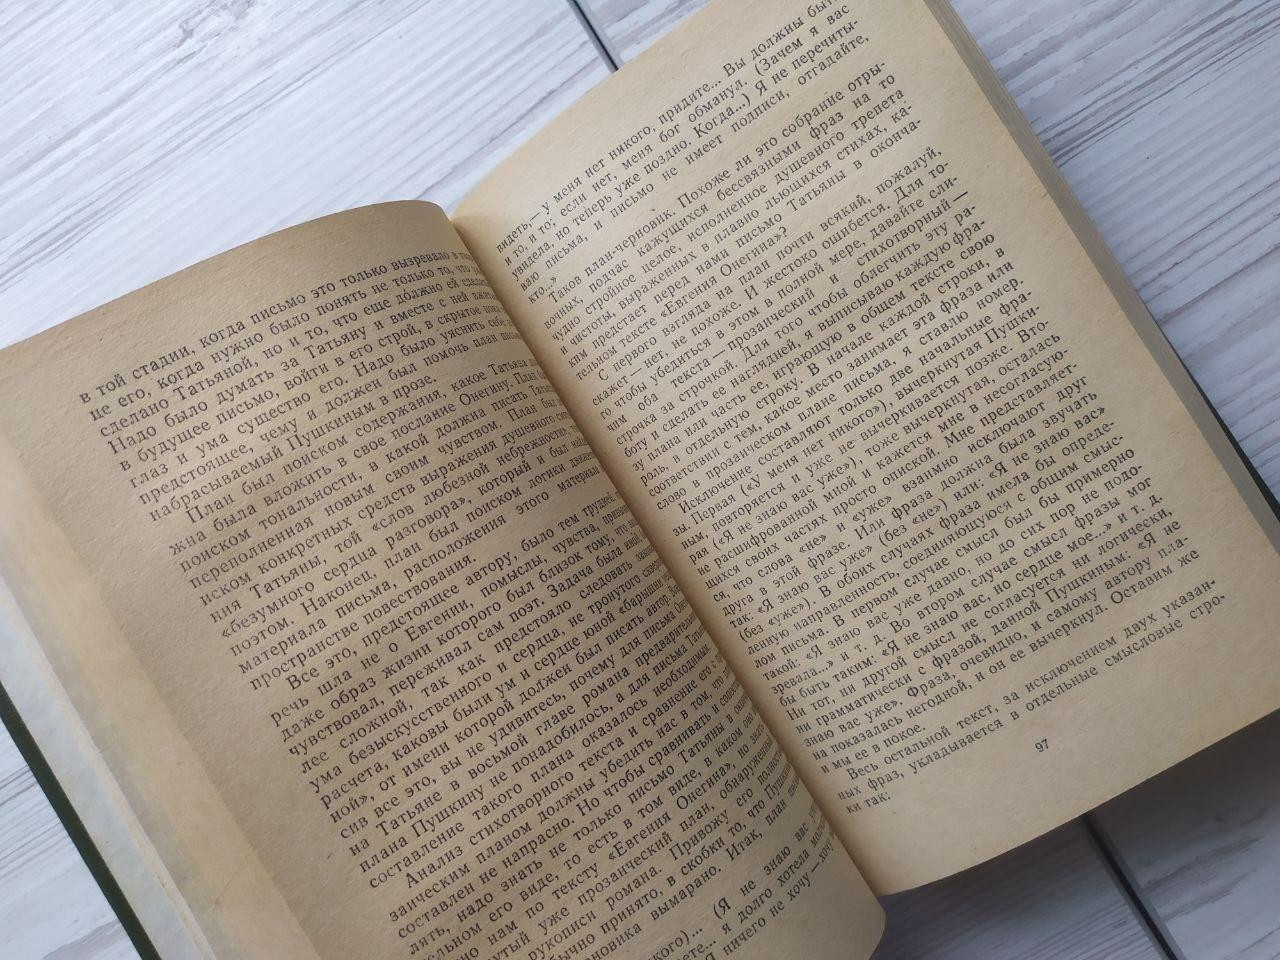 в той стадии, когда письмо это только вызревало в
це его, когда нужно было понять не только то, что
сделано Татьяной, но и то, что еще должно ей
Надо было думать за Татьяну и вместе с ней
в будущее письмо, войти в его строй, в скрытое
глаз и ума существо его. Надо было уяснить себе
предстоящее, чему и должен был помочь план
набрасываемый Пушкиным в прозе.
План был поиском содержания, какое Татьяна
жна была вложить в свое послание Онегину. План
поиском тональности, в какой должна писать
переполненная новым своим чувством. План
иском конкретных средств выражения душевного
ния Татьяны, той «слов любезной небрежности»,
«безумного сердца разговора», который и был
поэтом. Наконец, план был поиском логики
материала письма, расположения этого материала
пространстве повествования.
Все это, предстоящее автору, было тем трудней,
речь шла не о Евгении, помыслы, чувства,
даже образ жизни которого был близок тому, что
чувствовал, переживал сам поэт. Задача была иной,
лее сложной, так как предстояло следовать
ума безыскусственного и сердца, не тронутого
расчета, каковы были ум и сердце юной «барышни
ной», от имени которой должен был писать автор.
сив все это, вы не удивитесь, почему для письма
Татьяне в восьмой главе романа предварительного
плана Пушкину не понадобилось, а для письма
составление такого плана оказалось необходимым.
Анализ стихотворного текста и сравнение его с
заическим планом должны убедить нас в том, что
составлен не напрасно. Но чтобы сравнивать и
лять, надо знать не только письмо Татьяны в
тельном его виде, то есть в том виде, в каком оно
но нам по тексту «Евгения Онегина», но
нутый уже прозаический план, обнаруженный
рукописи романа. Привожу его
бычно принято, в скобки то, что
новика вымарано. Итак, план
(Я не знаю вас
я долго хотела
Я ничего не хочу —
видеть,— у меня нет никого, придите... Вы должны быть
и то, и то; если нет, меня бог обманул. (Зачем я вас
увидела, но теперь уже поздно. Когда...) Я не перечиты-
ваю письма, и письмо не имеет подписи, отгадайте,
кто...»
Таков план-черновик. Похоже ли это собрание отры-
вочных, подчас кажущихся бессвязными фраз на то
чудно стройное целое, исполненное душевного трепета
и чистоты, выраженных в плавно льющихся стихах, ка-
ким предстает перед нами письмо Татьяны в оконча-
тельном тексте «Евгения Онегина»?
С первого взгляда на план почти всякий, пожалуй,
скажет — нет, не похоже. И жестоко ошибется. Для то-
го чтобы убедиться в этом в полной мере, давайте сли-
чим оба текста — прозаический и стихотворный —
строчка за строчкой. Для того чтобы облегчить эту ра-
боту и сделать ее наглядней, я выписываю каждую фра-
зу плана или часть ее, играющую в общем тексте свою
роль, в отдельную строку. В начале каждой строки, в
соответствии с тем, какое место занимает эта фраза или
слово в прозаическом плане письма, я ставлю номер.
Исключение составляют только две начальные фра-
зы. Первая («у меня нет никого»), вычеркнутая Пушки-
ным, повторяется и уже не вычеркивается позже. Вто-
рая («Я не знаю вас уже»), тоже вычеркнутая, осталась
не расшифрованной мной и кажется мне в несогласую-
щихся своих частях просто опиской. Мне представляет-
ся, что слова «не» и «уже» взаимно исключают друг
друга в этой фразе. Или фраза должна была звучать
так: «Я знаю вас уже» (без «не») или: «Я не знаю вас»
(без «уже»). В обоих случаях фраза имела бы опреде-
ленную направленность, соединяющуюся с общим смыс-
лом письма. В первом случае смысл был бы примерно
такой: «Я знаю вас уже давно, но до сих пор не подо-
зревала...» и т. д. Во втором случае смысл фразы мог
бы быть таким: «Я не знаю вас, но сердце мое...» и т. д.
Ни тот, ни другой смысл не согласуется ни логически,
ни грамматически с фразой, данной Пушкиным: «Я не
знаю вас уже». Фраза, очевидно, и самому автору пись-
на показалась негодной, и он ее вычеркнул. Оставим же
и мы ее в покое.
Весь остальной текст, за исключением двух указан-
ных фраз, укладывается в отдельные смысловые стро-
ки так:
97